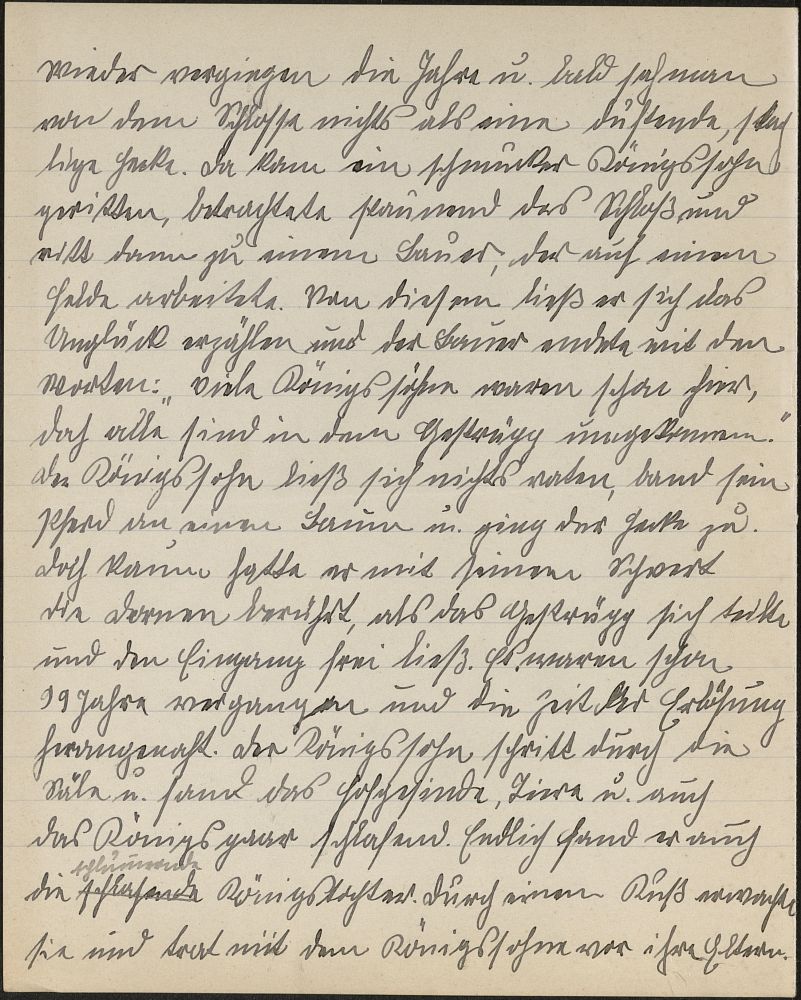 Wieder vergingen die Jahre u. bald sah man
von dem Schlosse nichts als eine duftende, stach
lige Hecke. Da kam ein schmucker Königssohn
geritten, betrachtete staunend das Schloß und
ritt dann zu einem Bauer, der auf einem
Felde arbeitete. Von diesem ließ er sich das
Unglück erzählen und der Bauer endete mit den
Worten: „Viele Königssöhne waren schon hier,
doch alle sind in dem Gestrüpp umgekommen."
Der Königssohn ließ sich nichts raten, band sein
Pferd an einen Baum u. ging der Hecke zu.
Doch kaum hatte er mit seinem Schwert
die Dornen berührt, als das Gestrüpp sich teilte
und den Eingang frei ließ. Es waren schon
99 Jahre vergangen und die Zeit der Erlösung
herangenaht. Der Königssohn schritt durch die
Säle u. fand das Hofgesinde, Tiere u. auch
das Königspaar schlafend. Endlich fand er auch
schlummernde
die schlafende Königstochter. Durch einen Kuß erwachte
sie und trat mit dem Königssohne vor ihre Eltern.